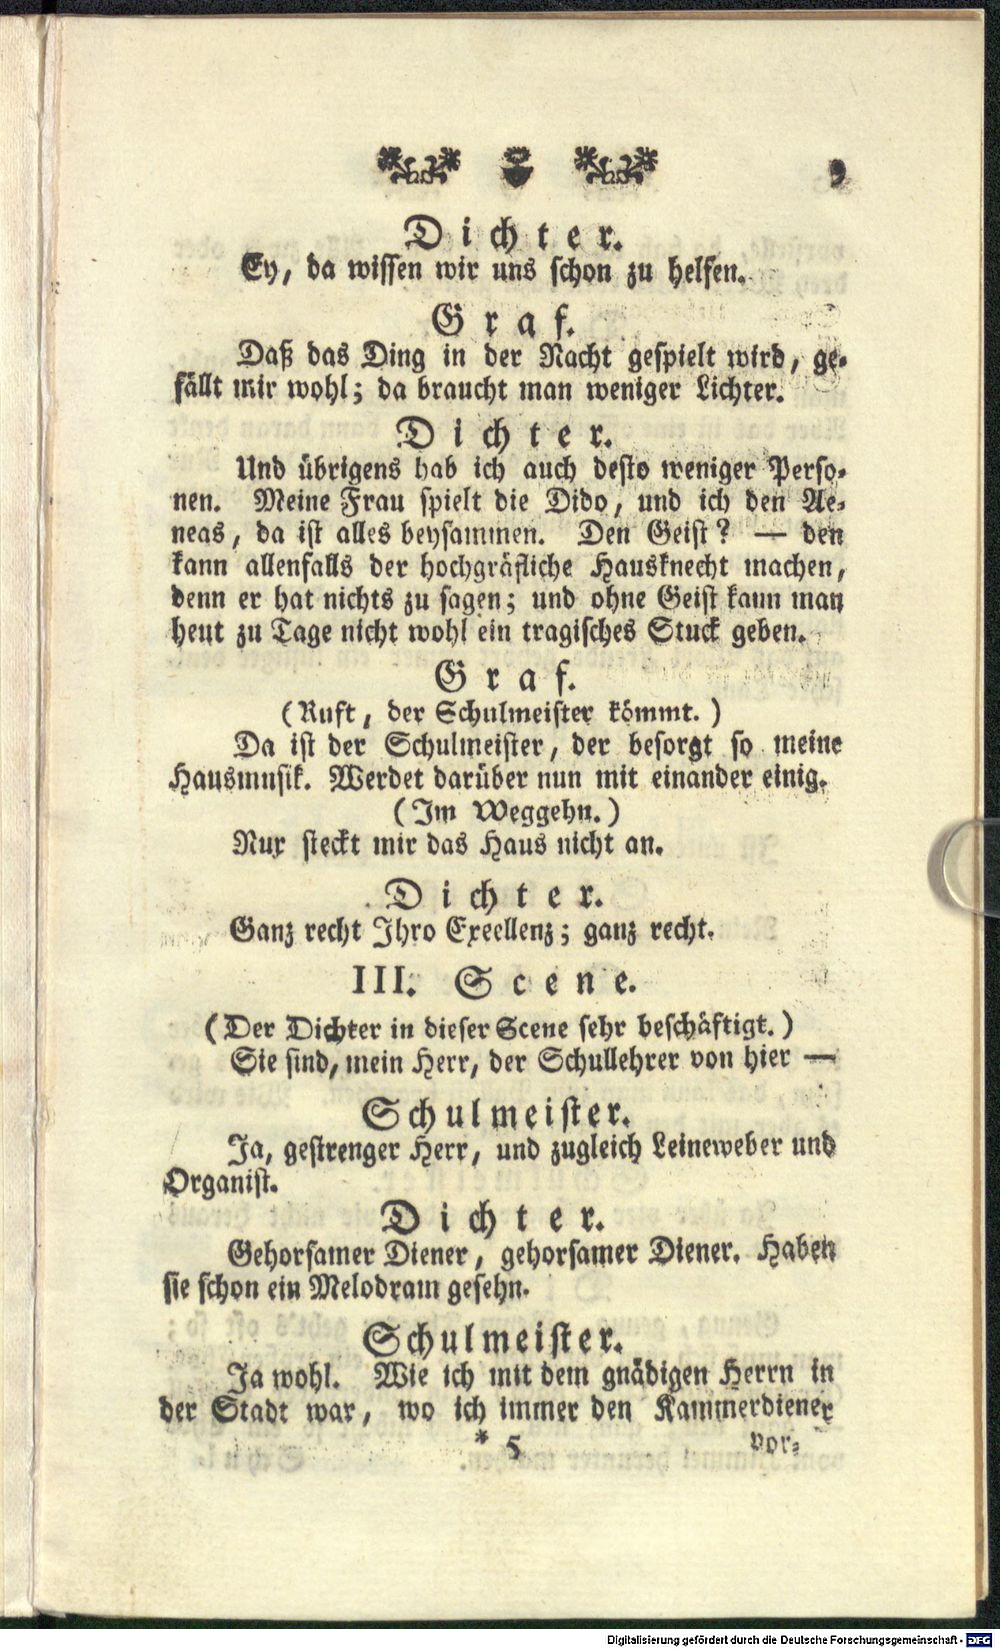 9
Dichter.
Ey, da wissen wir uns schon zu helfen.
Graf.
Daß das Ding in der Nacht gespielt wird, ge-
fällt mir wohl; da braucht man weniger Lichter.
Dichter.
Und übrigens hab ich auch desto weniger Perso-
nen. Meine Frau spielt die Dido, und ich den Ae-
neas, da ist alles beysammen. Den Geist? — den
kann allenfalls der hochgräfliche Hausknecht machen,
denn er hat nichts zu sagen; und ohne Geist kann man
heut zu Tage nicht wohl ein tragisches Stuck geben.
Graf.
(Ruft, der Schulmeister kömmt.)
Da ist der Schulmeister, der besorgt so meine
Hausmusik. Werdet darüber nun mit einander einig.
(Im Weggehn.)
Nur steckt mir das Haus nicht an.
Dichter.
Ganz recht Ihro Exeellenz; ganz recht.
III. Scene.
(Der Dichter in dieser Scene sehr beschäftigt.)
Sie sind, mein Herr, der Schullehrer von hier —
Schulmeister.
Ja, gestrenger Herr, und zugleich Leineweber und
Organist.
Dichter.
Gehorsamer Diener, gehorsamer Diener. Haben
sie schon ein Melodram gesehn.
Schulmeister.
Ja wohl. Wie ich mit dem gnädigen Herrn in
der Stadt war, wo ich immer den Kammerdiener
* 5 vor-
Digitalisierung gefördert durch die Deutsche Forschungsgemeinschaft - DFG